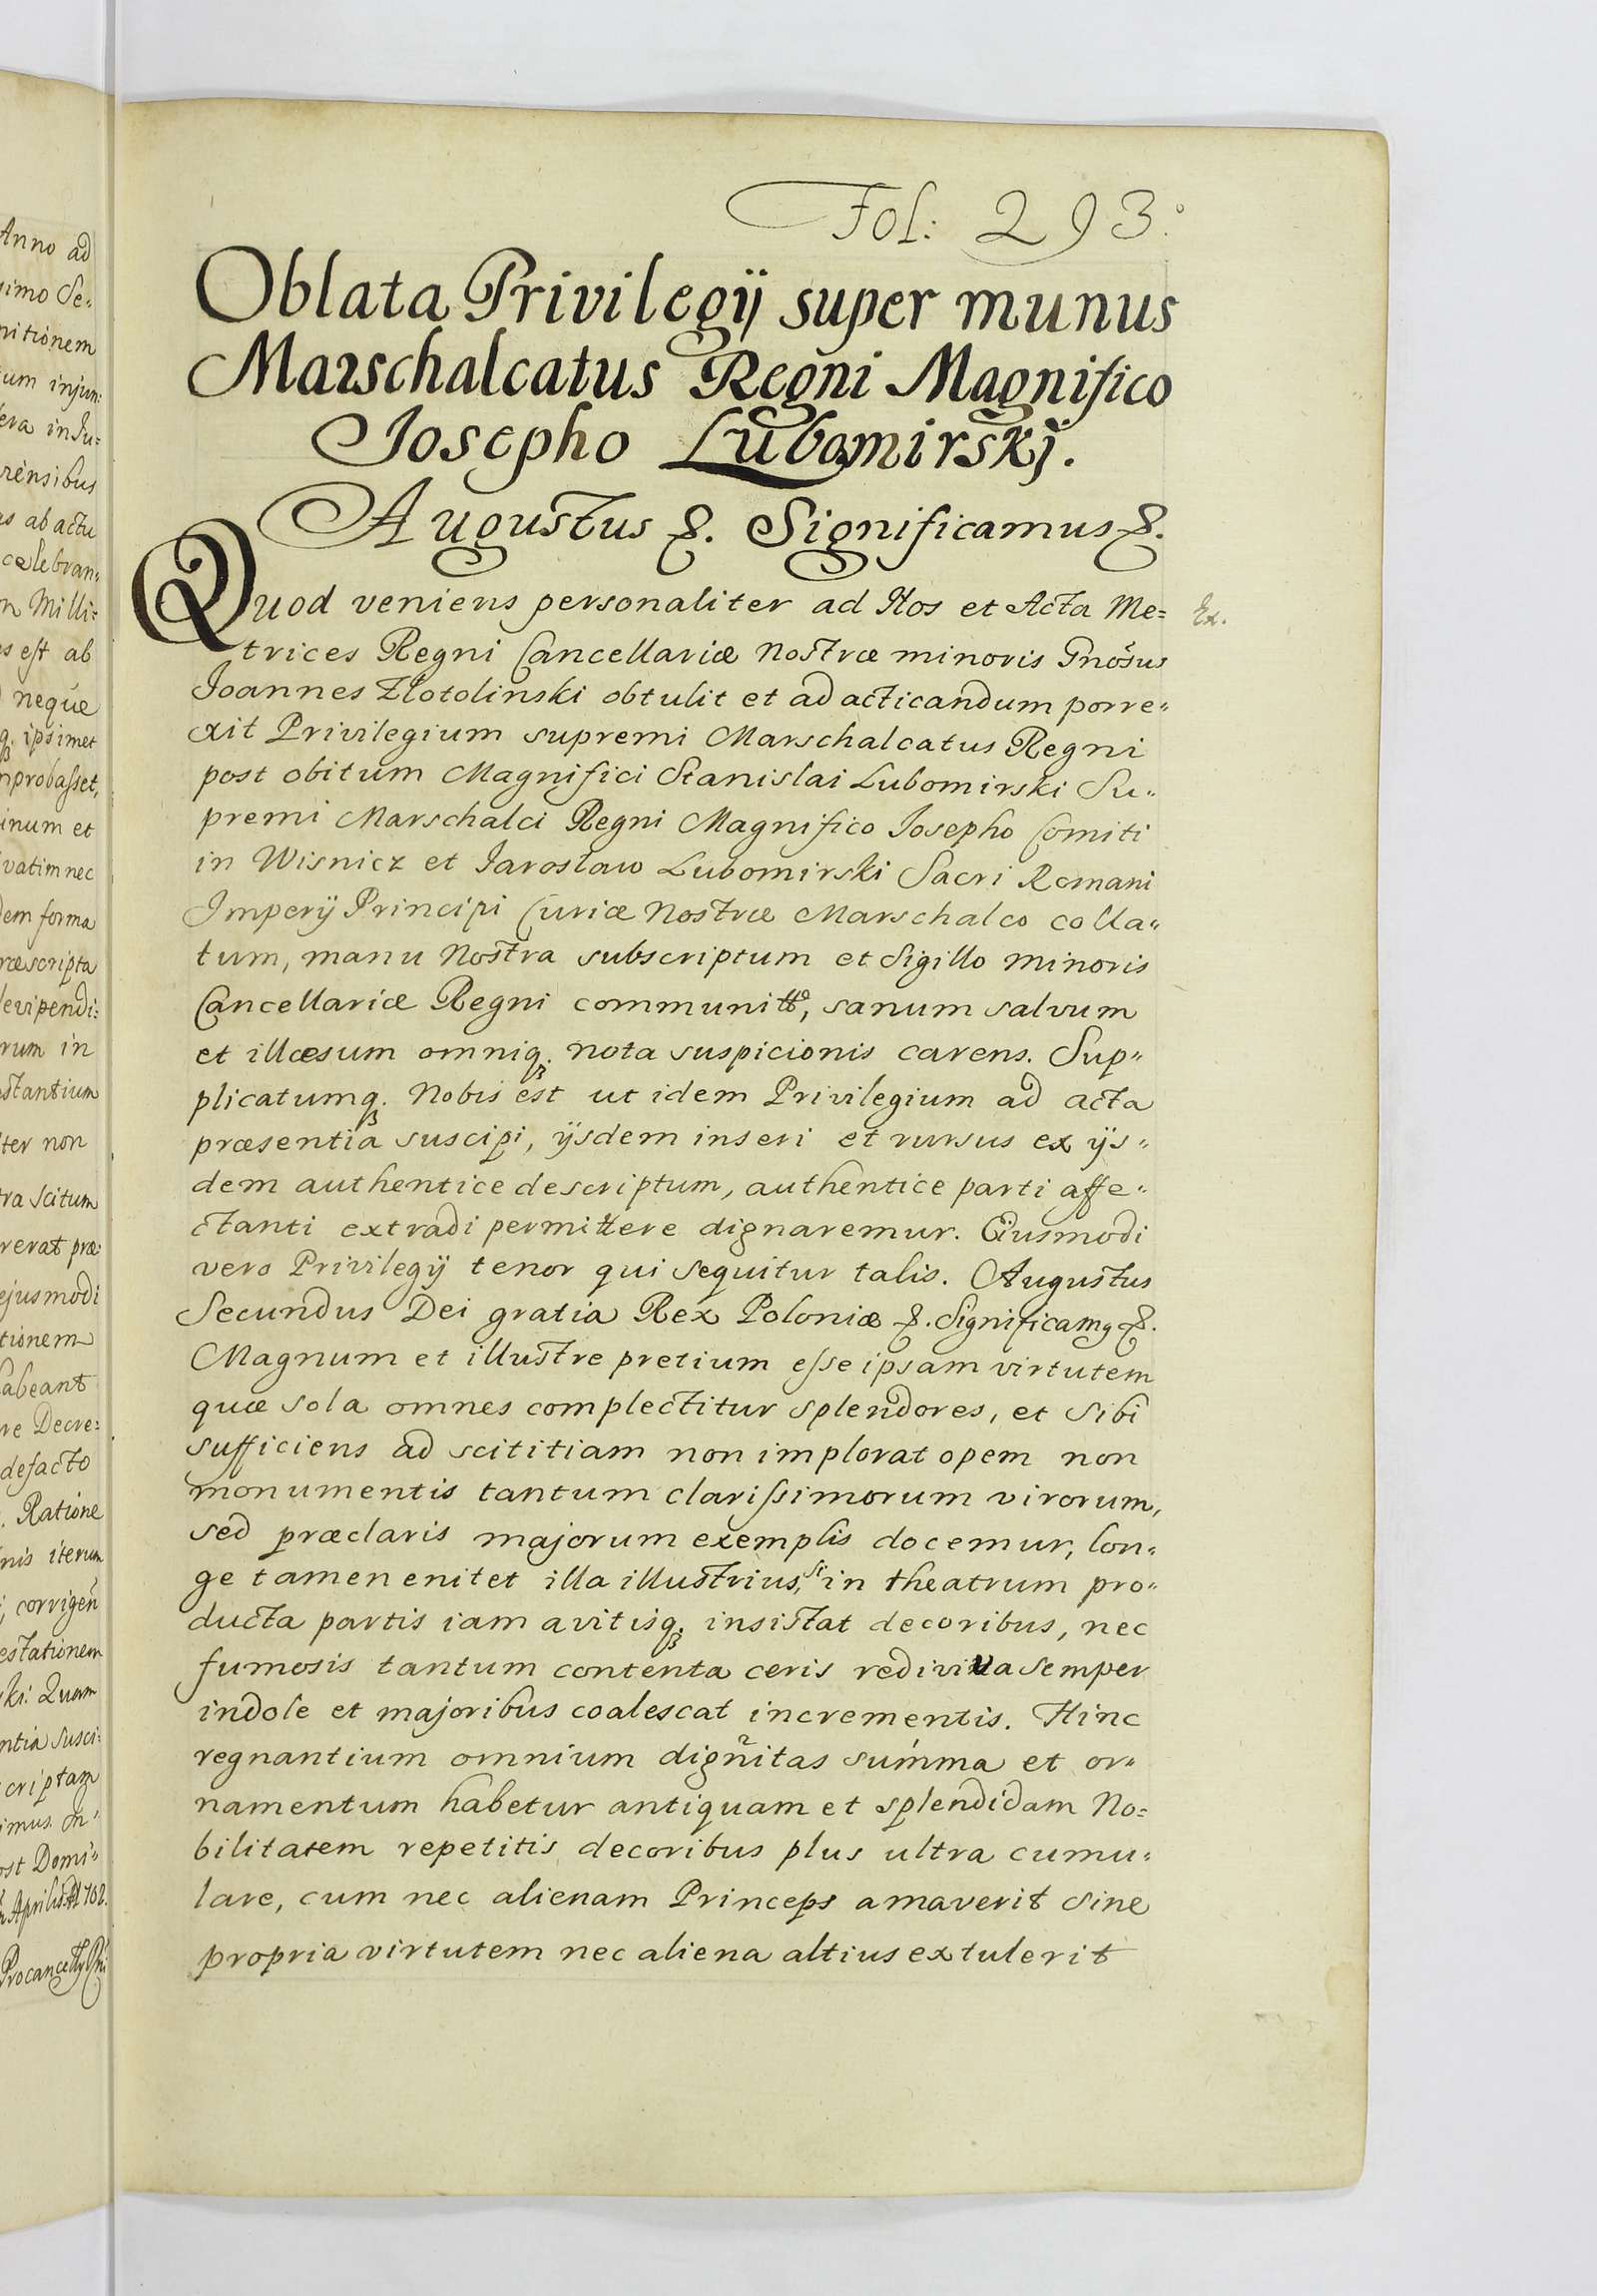 Anno ad
simo Se:
nitionem
um injun:
era in Ju=
rensibus
s ab actu
cœlebran:
n Milli:
s est ab
neque
q. ipsimet
nprobasset,
inum et
vatim nec
dem forma
ræscripta
levipendi:
rum in
stantium
ter non
ra scitum
verat præ:
ejusmodi
tionem
abeant
re Decre:
defacto
. Ratione
nis iterum
, corrigen̄
estationem
ki: Quam
ntia susci:
criptam
imus. In
ost Domi"
Aprilis Ad 702.
Procancell Rni
Fol: 293.
Oblata Privilegij super munus
Marschalcatus Regni Magnifico
Josepho Lubomirskj.
Augustus &. Significamus &.
Quod veniens personaliter ad Nos et Acta Me=
Ex.
trices Regni Cancellariæ Nostræ minoris Gnōsus
Joannes Zlotolinski obtulit et ad acticandum porre"
xit Privilegium supremi Marschalcatus Regni
post obitum Magnifici Stanislai Lubomirski Su"
premi Marschalci Regni Magnifico Josepho Comiti
in Wisnicz et Jaroslaw Lubomirski Sacri Romani
Imperij Principi Curiæ Nostræ Marschalco colla"
tum, manu Nostra subscriptum et Sigillo minoris
Cancellariæ Regni communitt̊, sanum salvum
et illæsum omniq. nota suspicionis carens. Sup"
plicatumq. Nobis est ut idem Privilegium ad acta
præsentia suscipi, ijsdem inseri et rursus ex ijs"
dem authentice descriptum, authentice parti affe"
ctanti extradi permittere dignaremur. Eiusmodi
vero Privilegij tenor qui sequitur talis. Augustus
Secundus Dei gratia Rex Poloniæ &. Significamq &.
Magnum et illustre pretium esse ipsam virtutem
quæ sola omnes complectitur splendores, et sibi
sufficiens ad scititiam non implorat opem non
monumentis tantum clarissimorum virorum,
sed præclaris majorum exemplis docemur, lon"
ge tamen enitet illa illustrius, si in theatrum pro"
ducta partis iam avitisq. insistat decoribus, nec
fumosis tantum contenta ceris rediviva semper
indole et majoribus coalescat incrementis. Hinc
regnantium omnium dign̄itas sum̄ma et or"
namentum habetur antiquam et splendidam No=
bilitatem repetitis decoribus plus ultra cumu"
lare, cum nec alienam Princeps amaverit sine
propria virtutem nec aliena altius extulerit